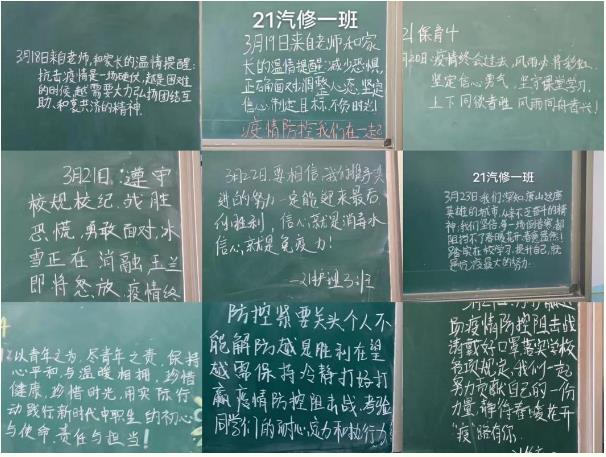 3月18日来自老师,和家长的温情提醒:
抗击疫情是一场硬仗,越是困难
的时候,越需要大力弘扬团结互
助、和衷共济的精神.
21汽修一班
3月19日来自老师和家
长的温情提醒:减少恐惧,
正确面对,调整心态,坚定
信心,制定目标,不负时光!
疫情防控我们在一起
21保育4
20日:疫情终会过去,风雨必将彩虹,
坚定信心勇气,坚守课堂学习,
上下同欲者胜,风雨同舟者兴!
3月21日:遵守
校规校纪,战胜
恐慌,勇敢面对,冰
雪正在消融,玉兰
即将怒放,疫情终
3月22日,要相信,我们携手头
进的努力一定能迎来最后
的胜利,信心就是消毒水
信心,就是免疫力!
—21护理3班
21汽修一班
3月23日我们深知,唐山这座
英雄的城市,从来不乏奋斗的精
神;我们坚信,每一场倒春寒,都
阻挡不了春暖花开,春意盎然!
踏实在校学习,提升自己,就
是抗疫最大的努力.
以青年之为,尽青年之责,保持
心平和与温暖相拥,珍惜
健康,珍惜时光,用实际行
动践行新时代中职生的初心
与使命,责任与担当!
防控紧要关头个人不
能解防越是胜利在望
越要保持冷静打好打
赢疫情防控阻击战,考验
同学们的耐心,定力和执行力
场疫情防控阻击战
请戴好口罩,落实学校
各项规定,我们一起
努力贡献自己的一份
力量,静待春暖花开
"疫"路有你.